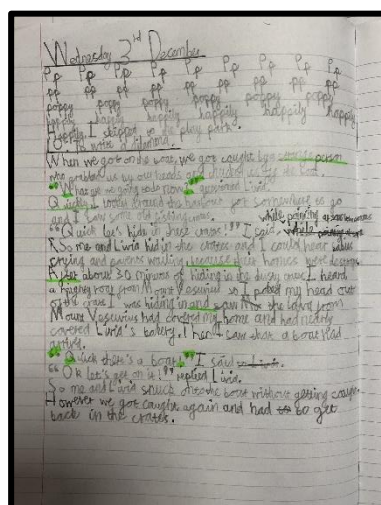 Wednesday 3rd December
Pp Pp Pp Pp Pp Pp Pp Pp
pp pp pp pp pp pp pp
poppy poppy poppy poppy poppy poppy
happily happily happily happily happily
Happily, I skipped to the play park.
to write a dilemma
When we got on the boat, we got caught by a person
who grabbed us by our heads and chucked us off the boat.
"What are we going to do now?" questioned Livia.
Quickly I looked around the harbour for somewhere to go
and I saw some old fishing crates.
"Quick let's hide in these crates!" I said, while pointing at some crates
So me and Livia hid in the crates and I could hear babies
crying and parents wailing because their homes were destroyed.
After about 30 minutes of hiding in the dusty crate I heard
a mighty roar from Mount Vesuvius so I poked my head out
of the crate I was hiding in and saw the lava from
Mount Vesuvius had covered my home and had nearly
covered Livia's bakery. Then I saw that a boat had
arrived.
"Quick there's a boat!" I said
"Ok let's get on it!" replied Livia.
So me and Livia snuck onto the boat without getting caught.
However we got caught again and had to go get
back in the crates.